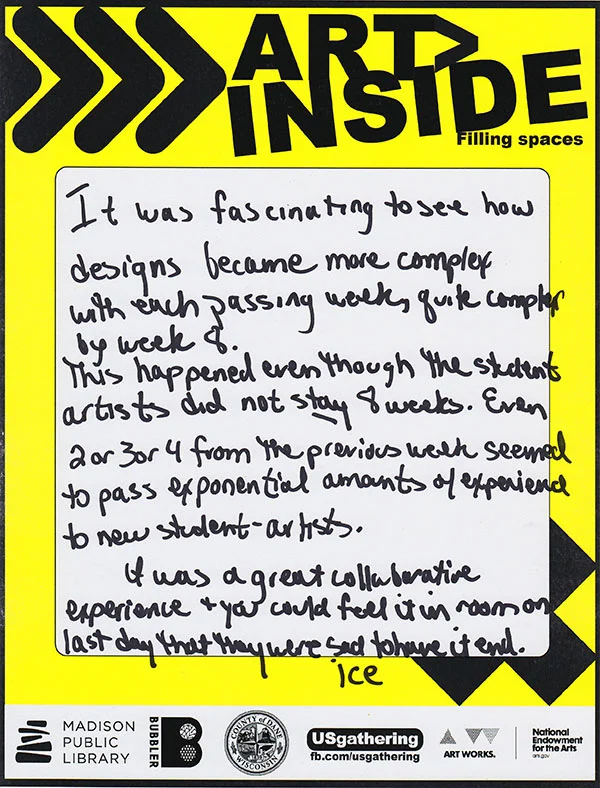 ART>
INSIDE
Filling spaces
It was fascinating to see how
designs became more complex
with each passing week, quite complex
by week 8.
This happened even though the student
artists did not stay 8 weeks. Even
2 or 3 or 4 from the previous week seemed
to pass exponential amounts of experience
to new student-artists.
It was a great collaborative
experience + you could feel it in room on
last day that they were sad to have it end.
ice
MADISON
PUBLIC
LIBRARY
BUBBLER
B
COUNTY of DANE
WISCONSIN
USgathering
fb.com/usgathering
ART WORKS.
National
Endowment
for the Arts
arts.gov